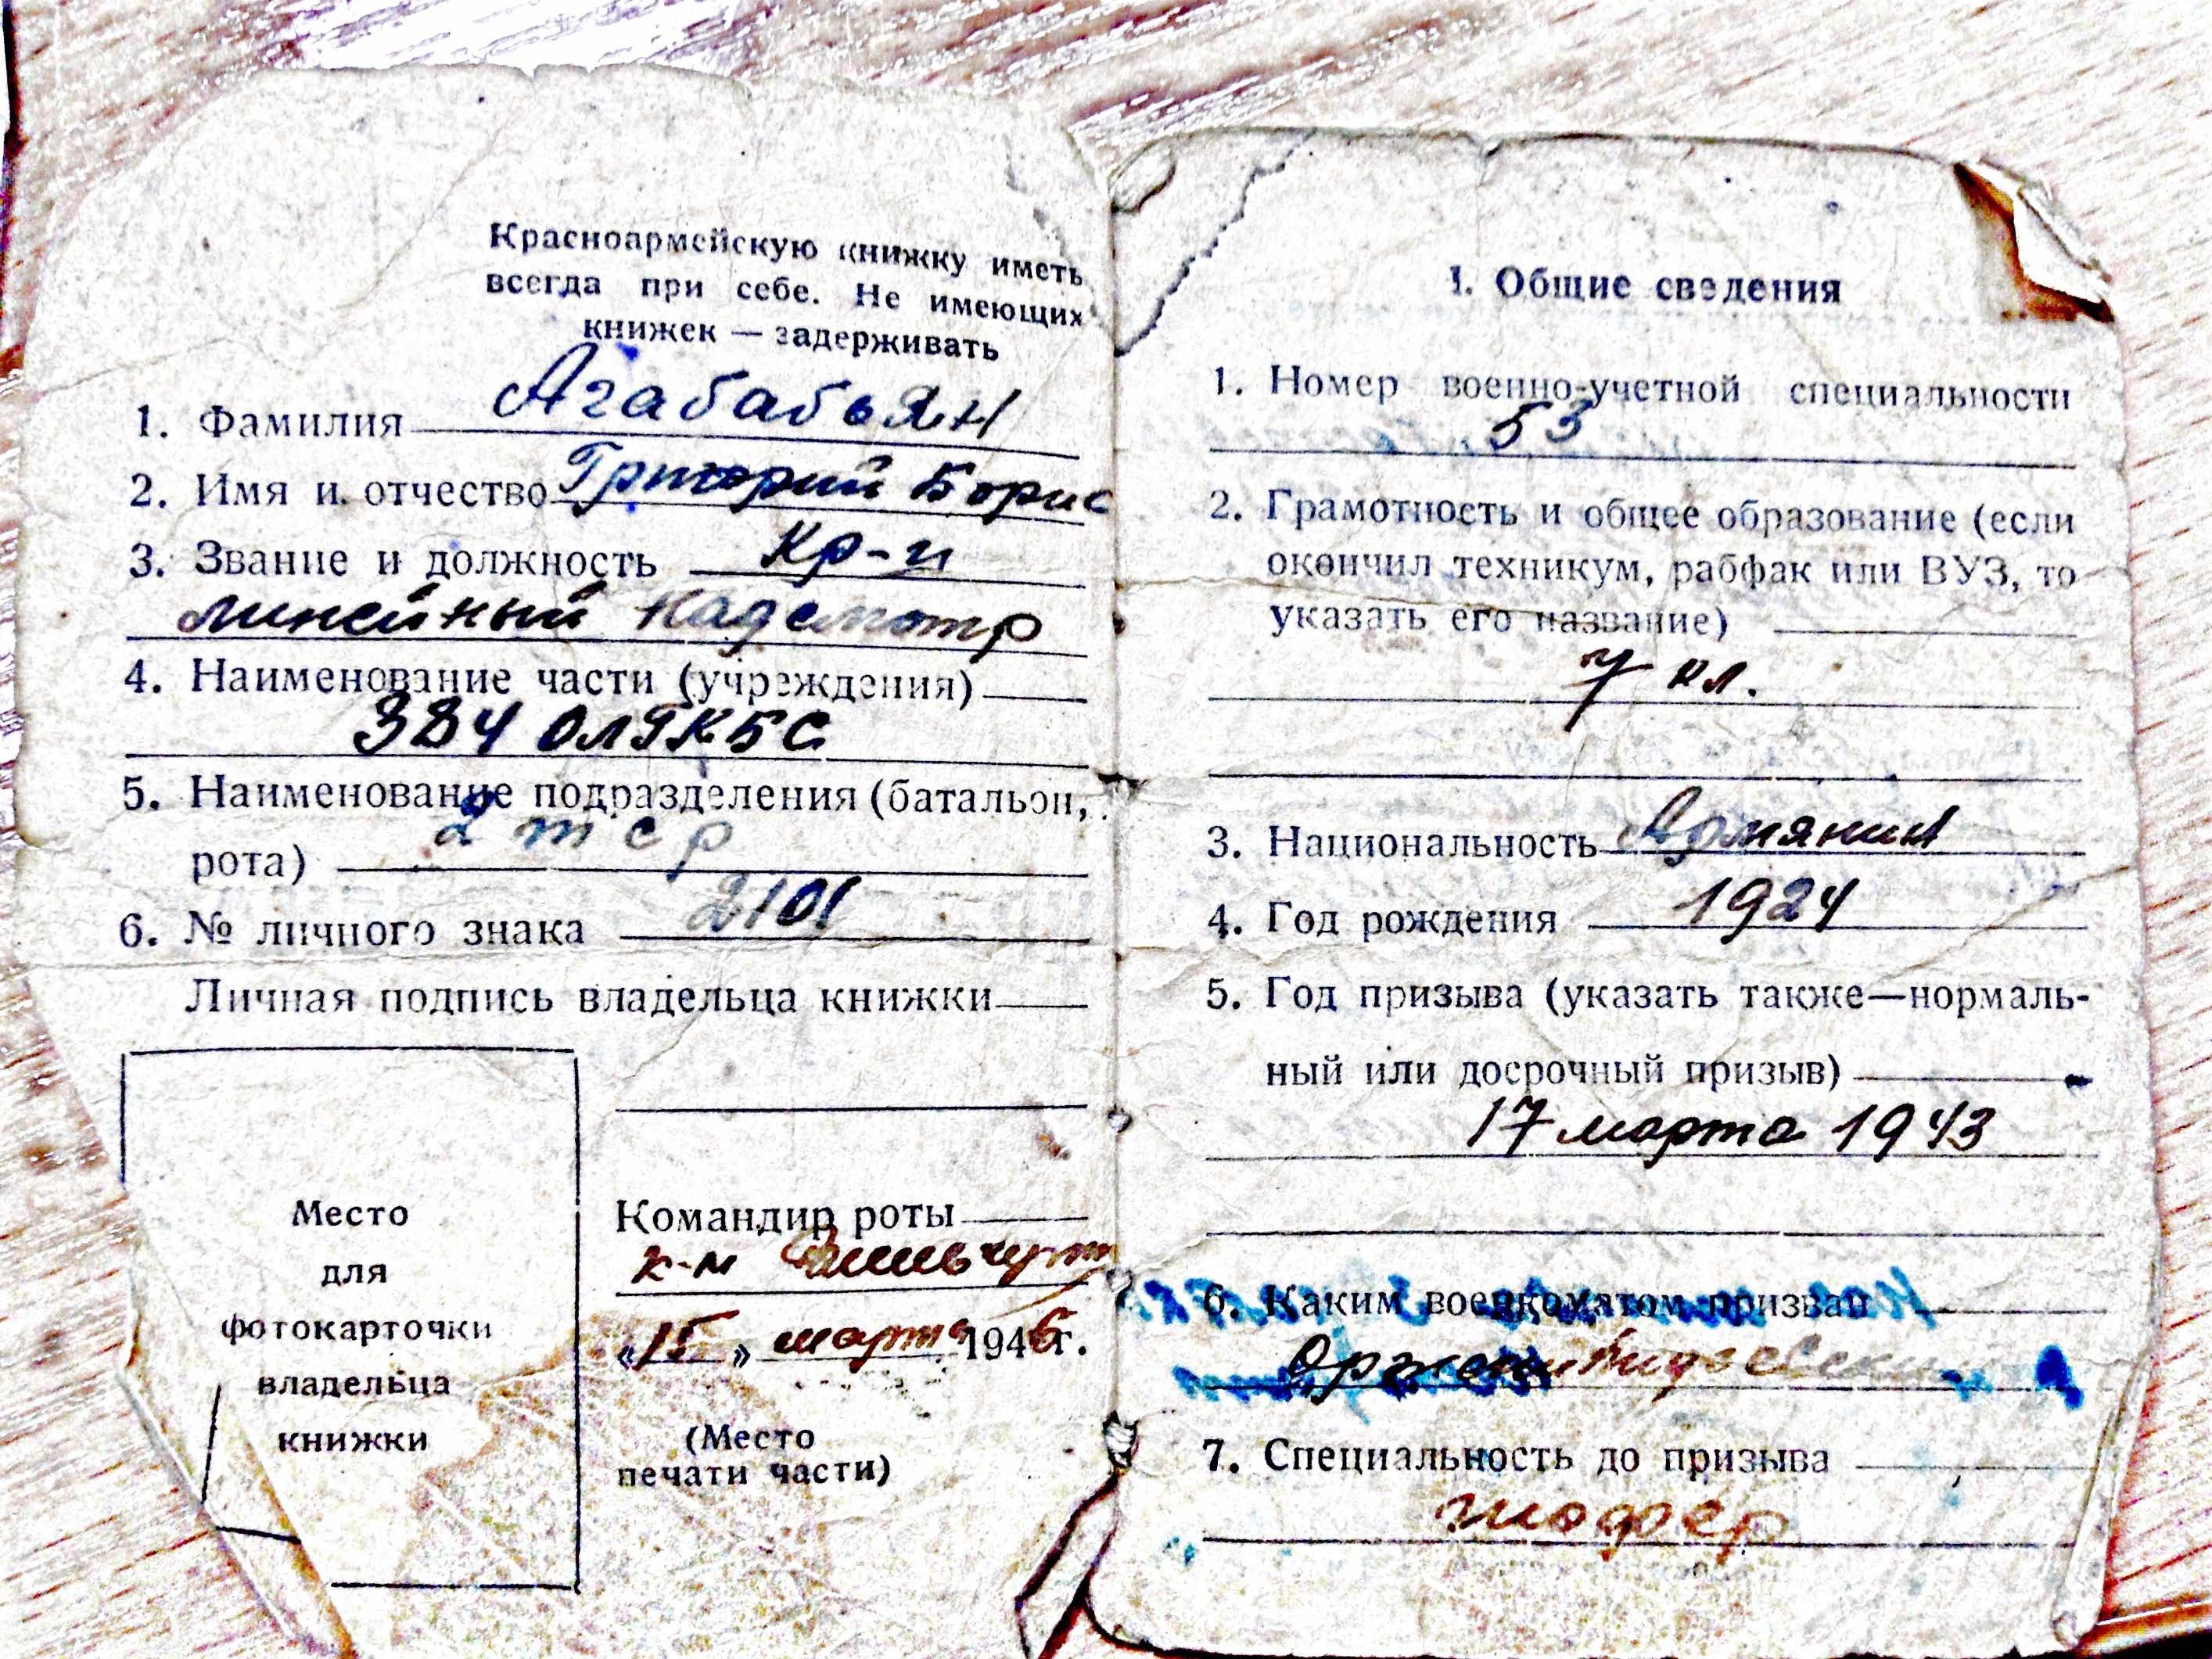 Красноармейскую книжку иметь
всегда при себе. Не имеющих
книжек — задерживать
1. Фамилия Агабабьян
2. Имя и отчество Григорий Борис
3. Звание и должность Кр-ц
линейный надсмотр
4. Наименование части (учреждения)
384
5. Наименование подразделения (батальон,
2 т с р
рота)
6. № личного знака 2101
Личная подпись владельца книжки
Место
для
фотокарточки
владельца
книжки
Командир роты
к-н
«15» марта 1946 г.
(Место
печати части)
I. Общие сведения
1. Номер военно-учетной специальности
53
2. Грамотность и общее образование (если
окончил техникум, рабфак или ВУЗ, то
указать его название)
7 кл.
3. Национальность Армянин
4. Год рождения 1924
5. Год призыва (указать также—нормаль-
ный или досрочный призыв)
17 марта 1943
6. Каким военкоматом призван
Орженикидзевски
7. Специальность до призыва
шофер